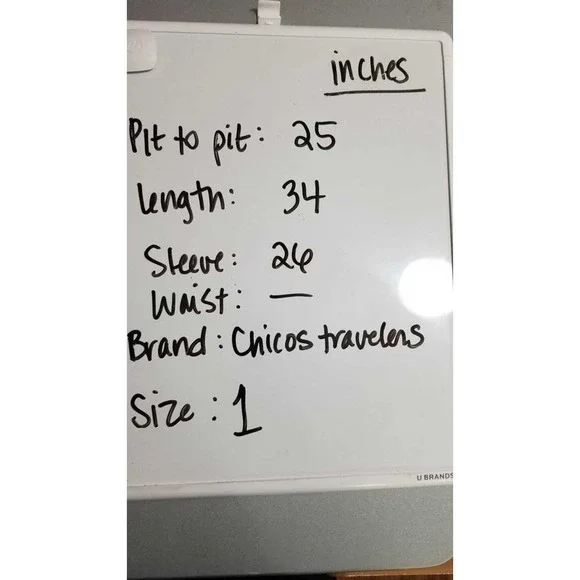 inches
Pit to pit: 25
Length: 34
Sleeve: 26
Waist: —
Brand: Chicos travelers
Size: 1
U BRANDS